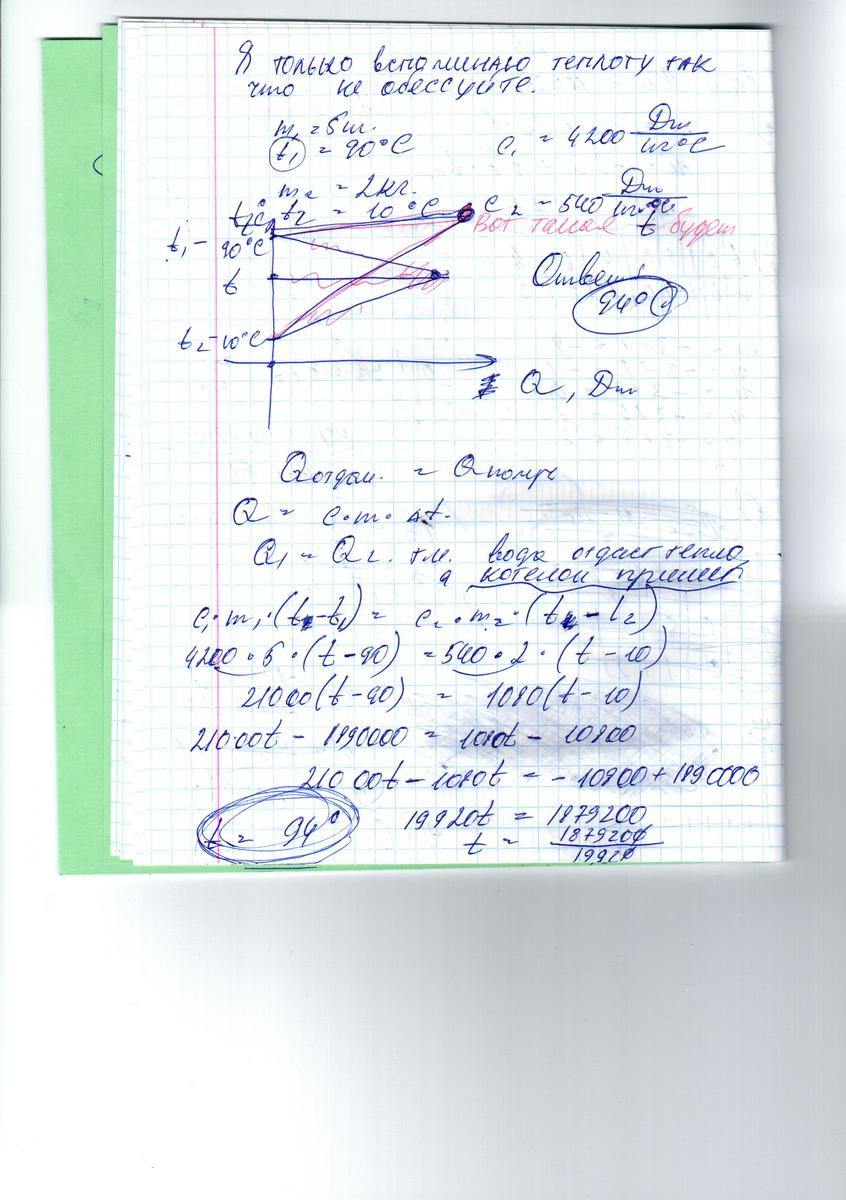 Я только вспоминаю теплоту так
что не обессуйте.
m₁ = 5кг.
t₁ = 90°C
c₁ = 4200 Дж/кг°C
m₂ = 2кг.
t₂ = 10°C
c₂ = 540 Дж/кг°C
t°C
Вот такая t будет
t₁ - 90°C
t
Ответ:
94°C
t₂ - 10°C
Q, Дж
Qотдан. = Qполуч
Q = c·m·Δt.
Q₁ = Q₂. т.к. вода отдаст тепло
а котелок примет
c₁·m₁·(t-t₁) = c₂·m₂·(t-t₂)
4200·5·(t-90) = 540·2·(t-10)
21000(t-90) = 1080(t-10)
21000t - 1890000 = 1080t - 10800
21000t - 1080t = -10800 + 1890000
19920t = 1879200
t = 1879200/19920
t = 94°